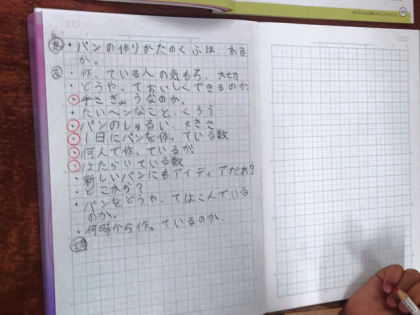 ・パンの作りかたのくふうは、ある
か。
・作っている人の気もち、大切
・どうやっておいしくできるのか
・手こぎょうなのか。
・たいヘンなこと、くろう
・パンのしゅるい、大きさ
・1日にパンを作っている数
・何人で作っているか
・はたらいている数
・新しいパンにもアイディアだれ?
どこから?
・パンをどうやってはこんでいる
のか。
・何時から作っているのか。